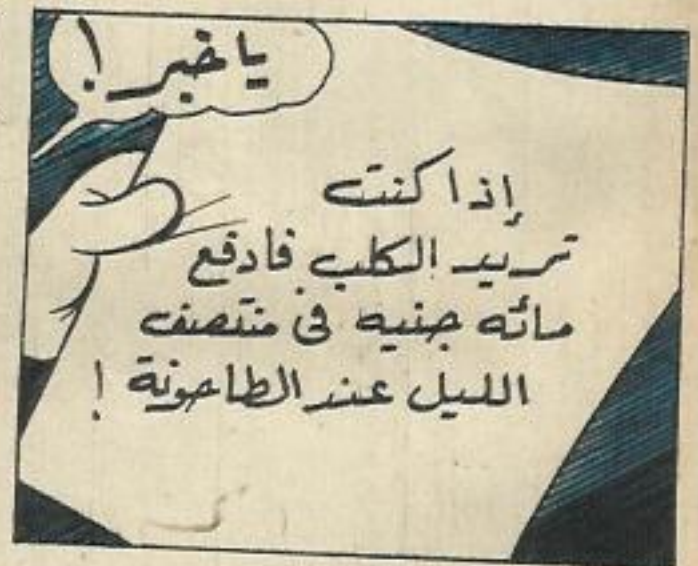 يا خبر !
إذا كنت
تريد الكلب فادفع
مائه جنيه فى منتصف
الليل عند الطاحونة !